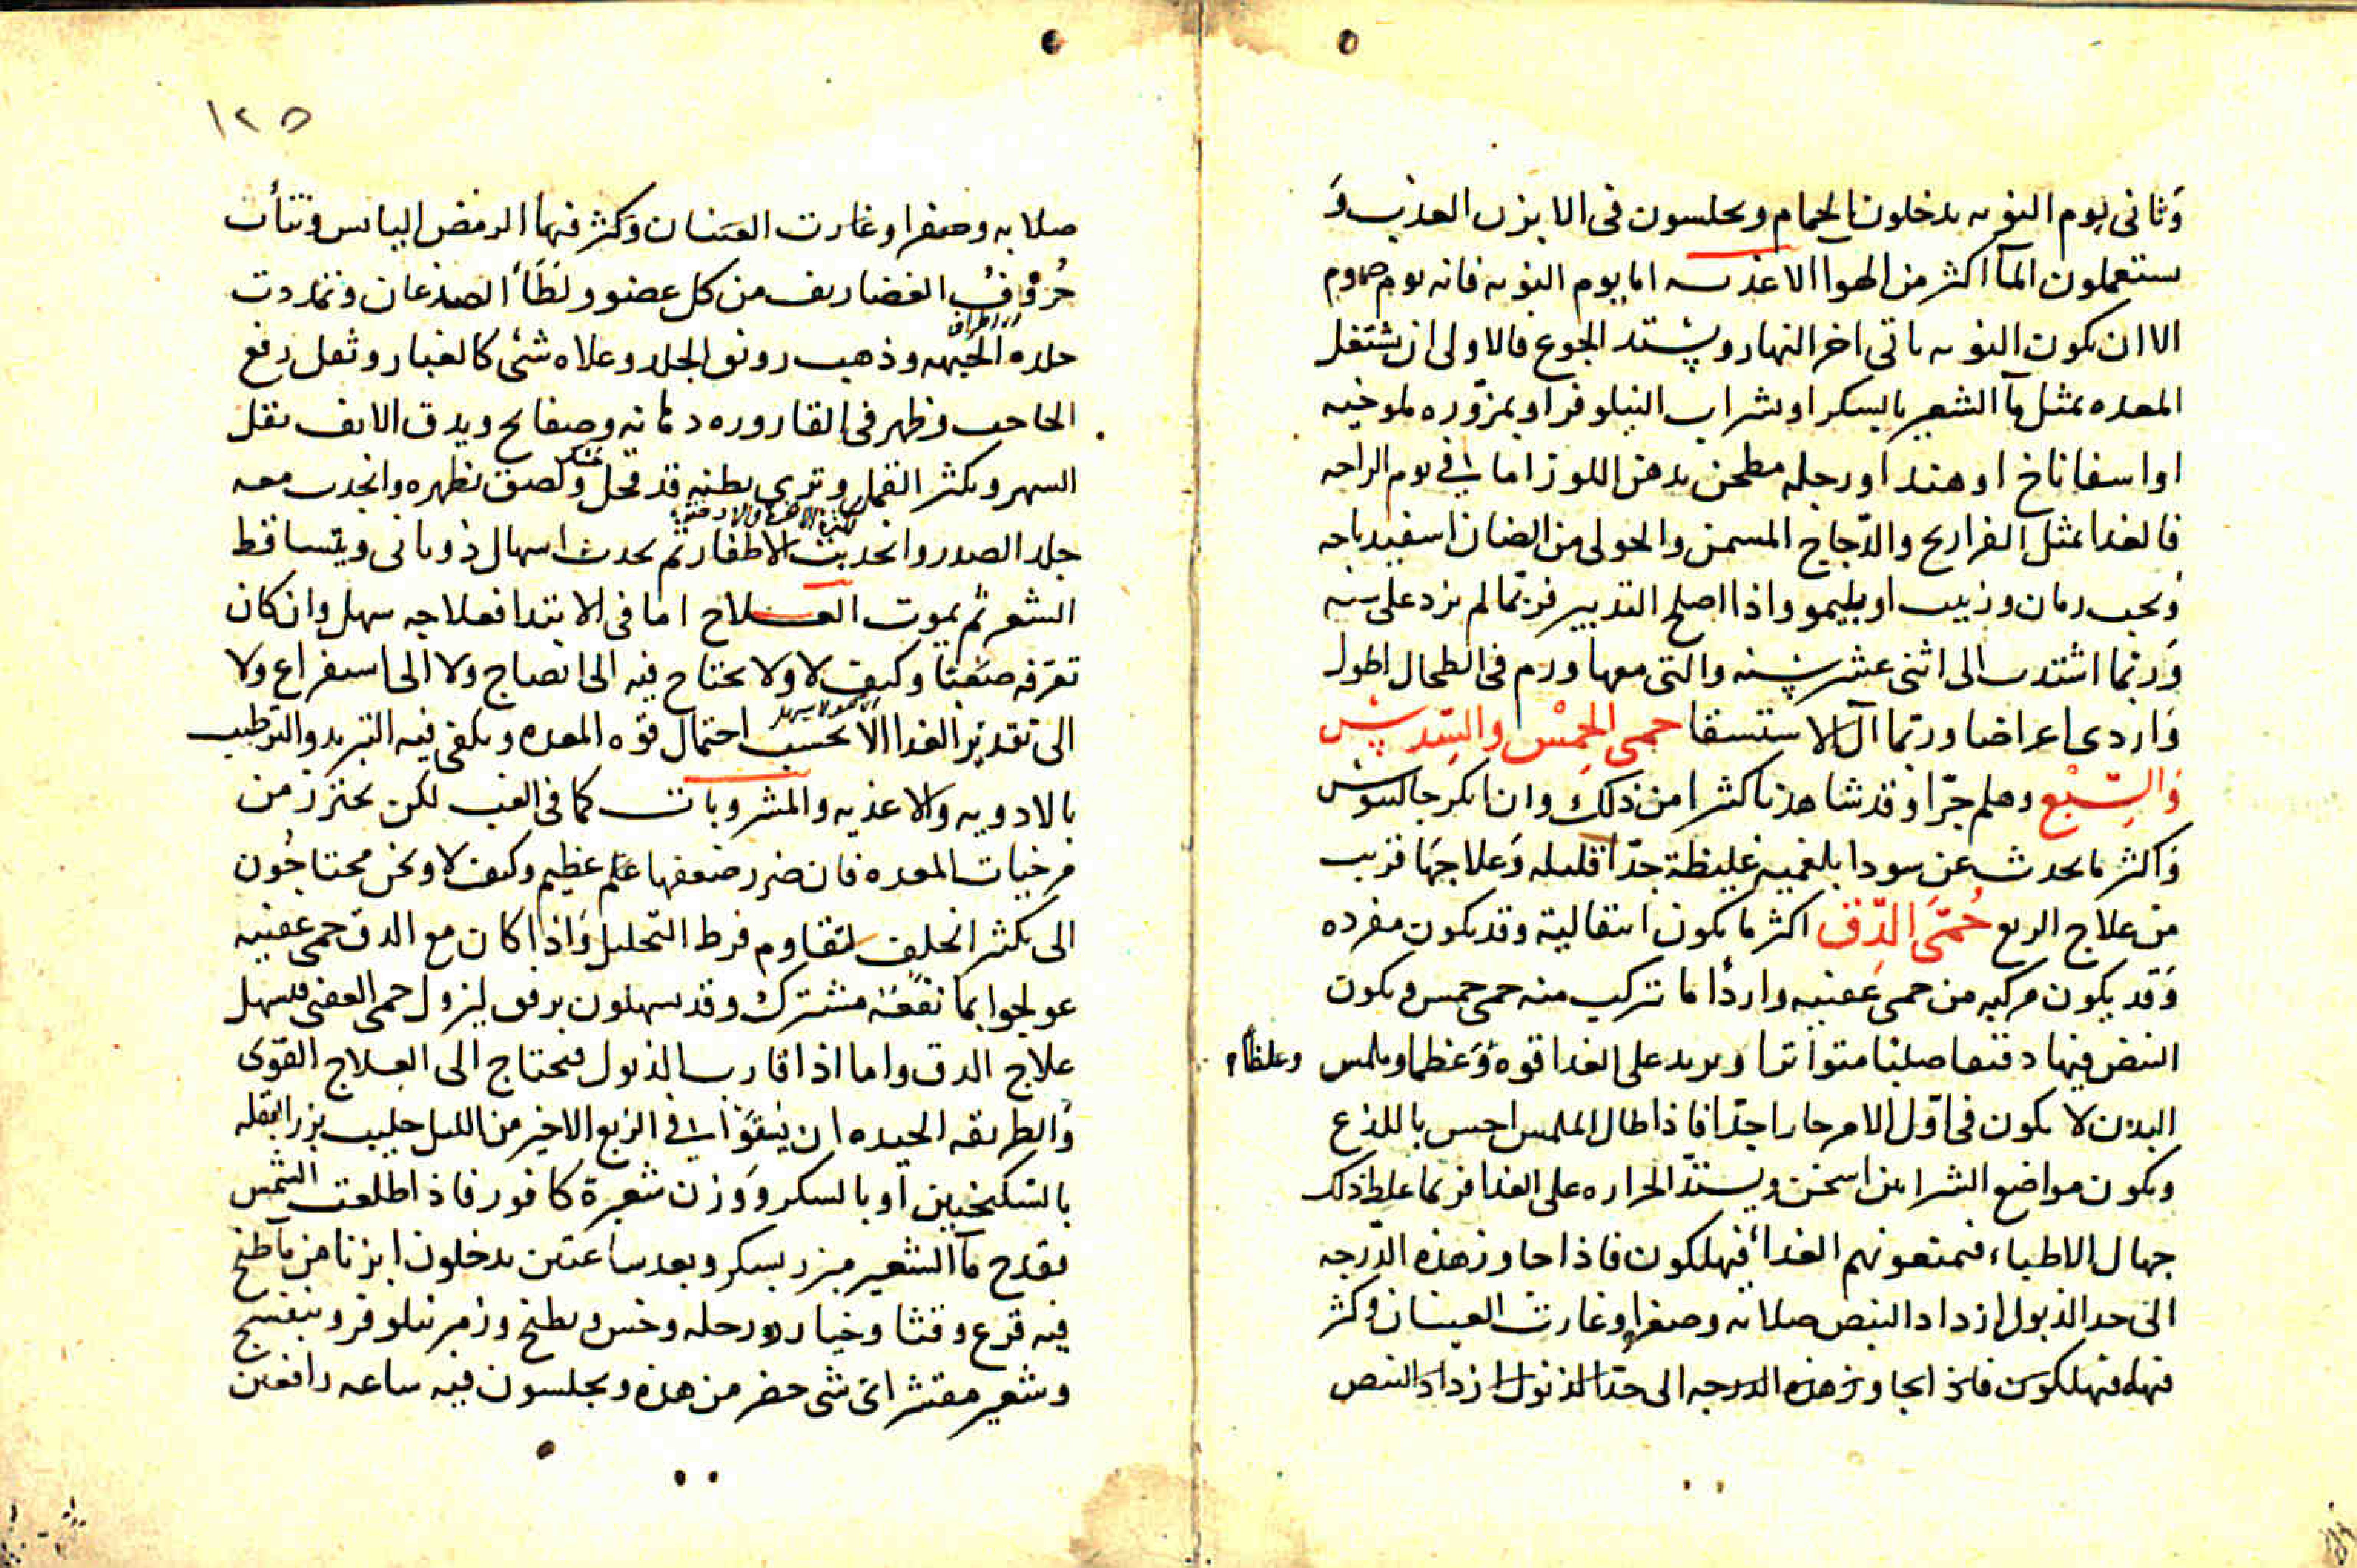 وثانى يوم النوبه يدخلون الحمام ويجلسون فى الابزن العذب و
يستعملون المآ اكثر من الهوا الاغذيه اما يوم النوبه فانه يوم صوم
الا ان يكون النوبه ياتى اخر النهار ويشتد الجوع فالاولى ان يشتغل
المعده بمثل مآ الشعير بالسكر او بشراب النيلوفر او بمزوّره ملوخيه
او اسفاناخ او هندبا او رجله مطجن بدهن اللوز اما فى يوم الراحه
فالغدا مثل الفراريج والدّجاج المسمن والحولى من الضان اسفيدباجه
وبحب رمان وزبيب او بليمو واذا اصلح التدبير فربّما لم يزد على سنه
وربما اشتدت الى اثنى عشر سنه والتى معها ورم فى الطحال اطول
واردى اعراضا وربّما آل الا ستسقا حمى الخِمْس والسِّدس
والسِّبْع وهلم جرّا وقد شاهدنا كثيرا من ذلك وان انكر جالينوس
واكثر ما يحدث عن سودا بلغميه غليظة جدّا قليله وعلاجها قريب
من علاج الربع حُمَّى الدِّق اكثر ما يكون انتقالية وقد يكون مفرده
وقد يكون مركبه من حمى عفنيه واردأ ما تتركب منه حمى خمس ويكون
النبض فيها دقيقا صلبا متواترا ويزيد على الغدا قوه وعظما وملمس
وغلظا
البدن لا يكون فى اوّل الامر حارا جدّا فاذا طال الملمس احس باللذع
ويكون مواضع الشرايين اسخن ويشتدّ الحراره على الغدا فربما غلط ذلك
جهال الاطباء فيمنعونهم الغداء فيهلكون فاذا جاوز هذه الدّرجه
الى حد الذبول ازداد النبض صلابه وصغرا وغارت العينان وكثر
فيهلكون فاذا تجاوز هذه الدرجه الى حدّ الذبول ازداد النبض
١٢٥
صلابه وصغرا وغارت العينان وكثر فيهما الرمص اليابس ونتأت
حُرُوفُ الغضاريف من كل عضو ولطَأَ الصدغان وتمددت
اى اطراف
جلده الجبهه وذهب رونق الجلد وعلاه شئ كالغبار وثقل رفع
الحاجب وظهر فى القاروره دهانيه وصفايح ويدق الانف
السهر ويكثر القمل وترى بطنه قد قحل ولصق بظهره وانجذب معه
جلد الصدر وانحدبت الاظفار ثم يحدث اسهال ذوبانى ويتساقط
الشعر ثم يموت العــلاج اما فى الابتدا فعلاجه سهل وان كان
تعرّفه صعبًا وكيف لا ولا يحتاج فيه الى انضاج ولا الى استفراغ ولا
الى تقدير الغدا الا بحسب احتمال قوّه المعده ويكفى فيه التبريد والترطيب
بالادويه والاغذيه والمشروبات كما فى الغب لكن يحترز من
مرخيات المعده فان ضرر ضعفها عظيم وكيف لا ونحن محتاجُون
الى يكثر الخلف لتقاوم فرط التحليل واذا كان مع الدق حمى عفنيه
عولجوا بما نفعه مشترك وقد يسهلون برفق ليزول حمى العفنى فيسهل
علاج الدق واما اذا قارب الذبول فيحتاج الى العلاج القوّى
والطريقه الجيده ان يسقوا فى الربع الاخير من الليل حليب بزر البقله
بالسكنجبين أو بالسكر ووزن شعيرة كافور فاذا طلعت الشمس
بقدح مآ الشعير مبزر بسكر وبعد ساعتين يدخلون ابزنا من مآ طبخ
فيه قرع وقثا وخيار ورجله وخس وبطيخ وزهر نيلوفر وبنفسج
وشعير مقشر اى شى حضر من هذه ويجلسون فيه ساعه رافعين